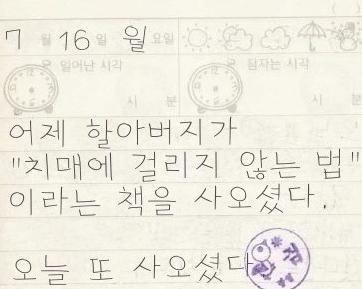 7월 16일 월요일
일어난 시각 잠자는 시각
시 분 시 분
어제 할아버지가
"치매에 걸리지 않는 법"
이라는 책을 사오셨다.
오늘 또 사오셨다